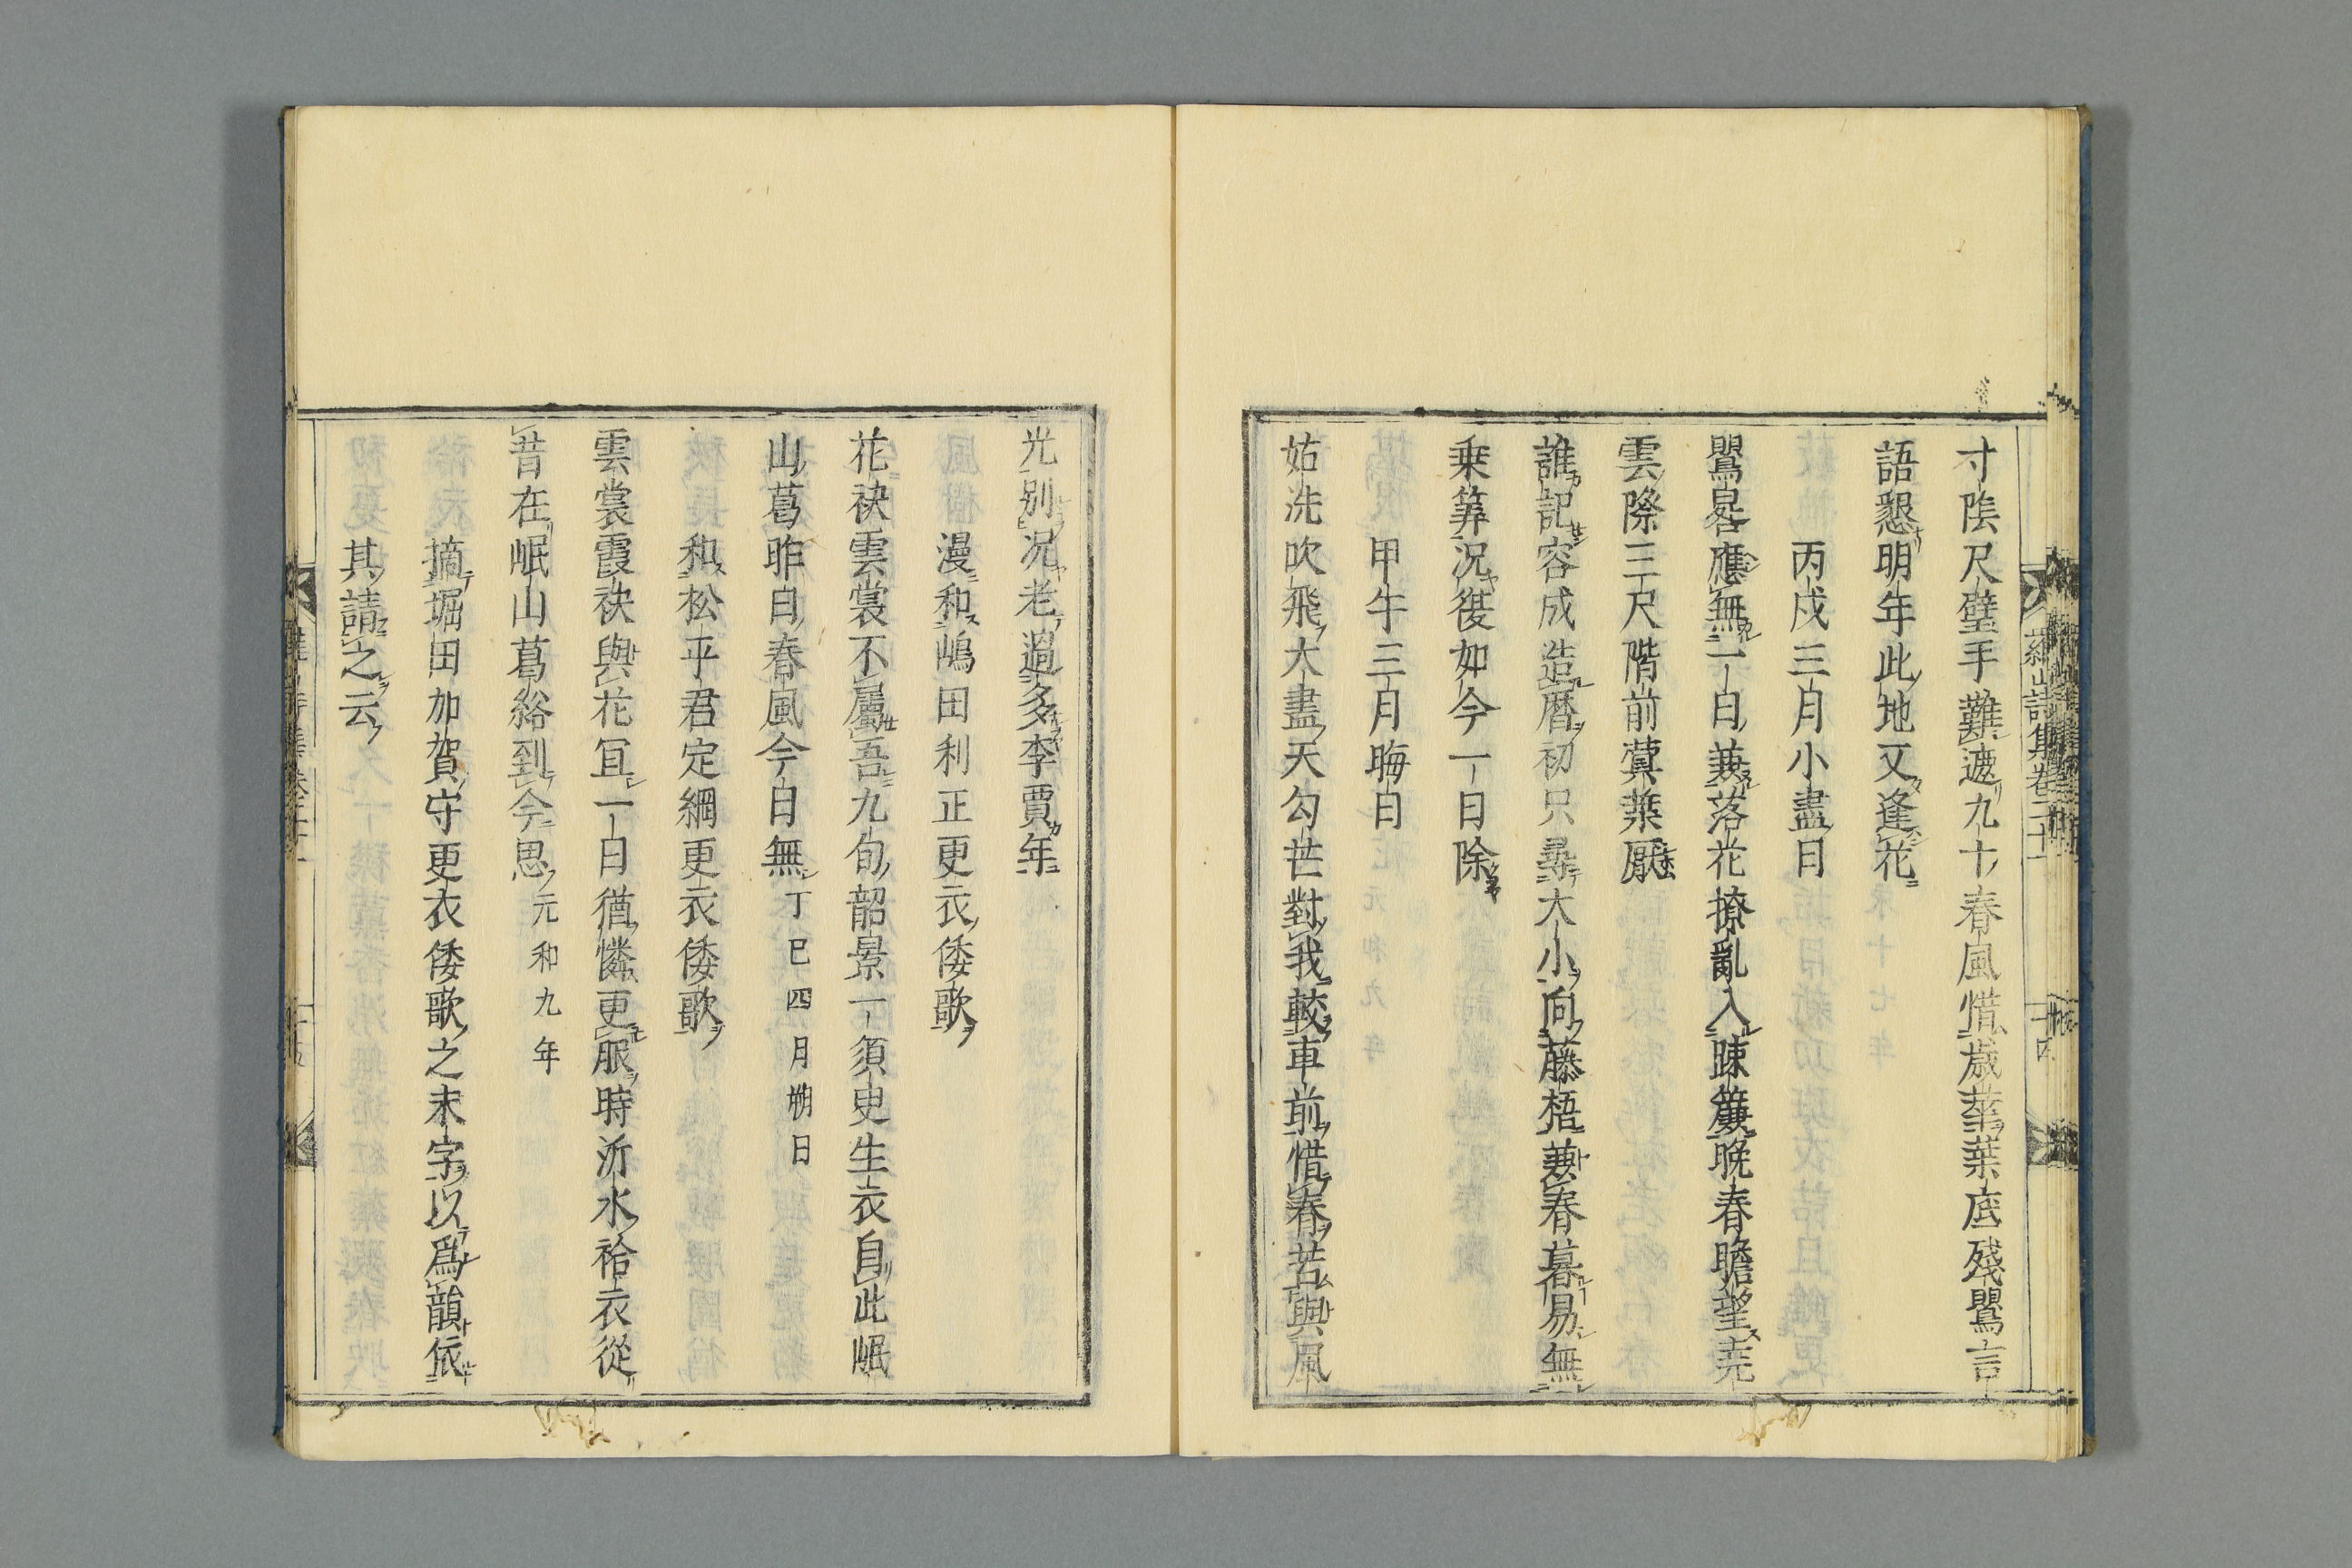 寸陰尺璧手難遮九十春風惜歳華葉底殘鸎言
語懇明年此地又逢花
丙戌三月小盡日
鸎晷應無一日兼落花撩亂入疎簾晩春瞻望尭
雲際三尺階前蓂葉厭
誰記容成造暦初只尋大小向藤梧兼春暮易無
乗筭况復如今一日除
甲午三月晦日
姑洗吹飛大盡天勾芒對我較車前惜春苦與風
光別况老過多李賈年
漫和嶋田利正更衣倭歌
花袂雲裳不屬吾九旬韶景一須臾生衣自此岷
山葛昨日春風今日無 丁巳四月朔日
和松平君定綱更衣倭歌
雲裳霞袂與花冝一日猶憐更服時沂水袷衣從
昔在岷山葛綌到今思 元和九年
摘堀田加賀守更衣倭歌之末字以爲韻依
其請之云
羅山詩集卷三十一